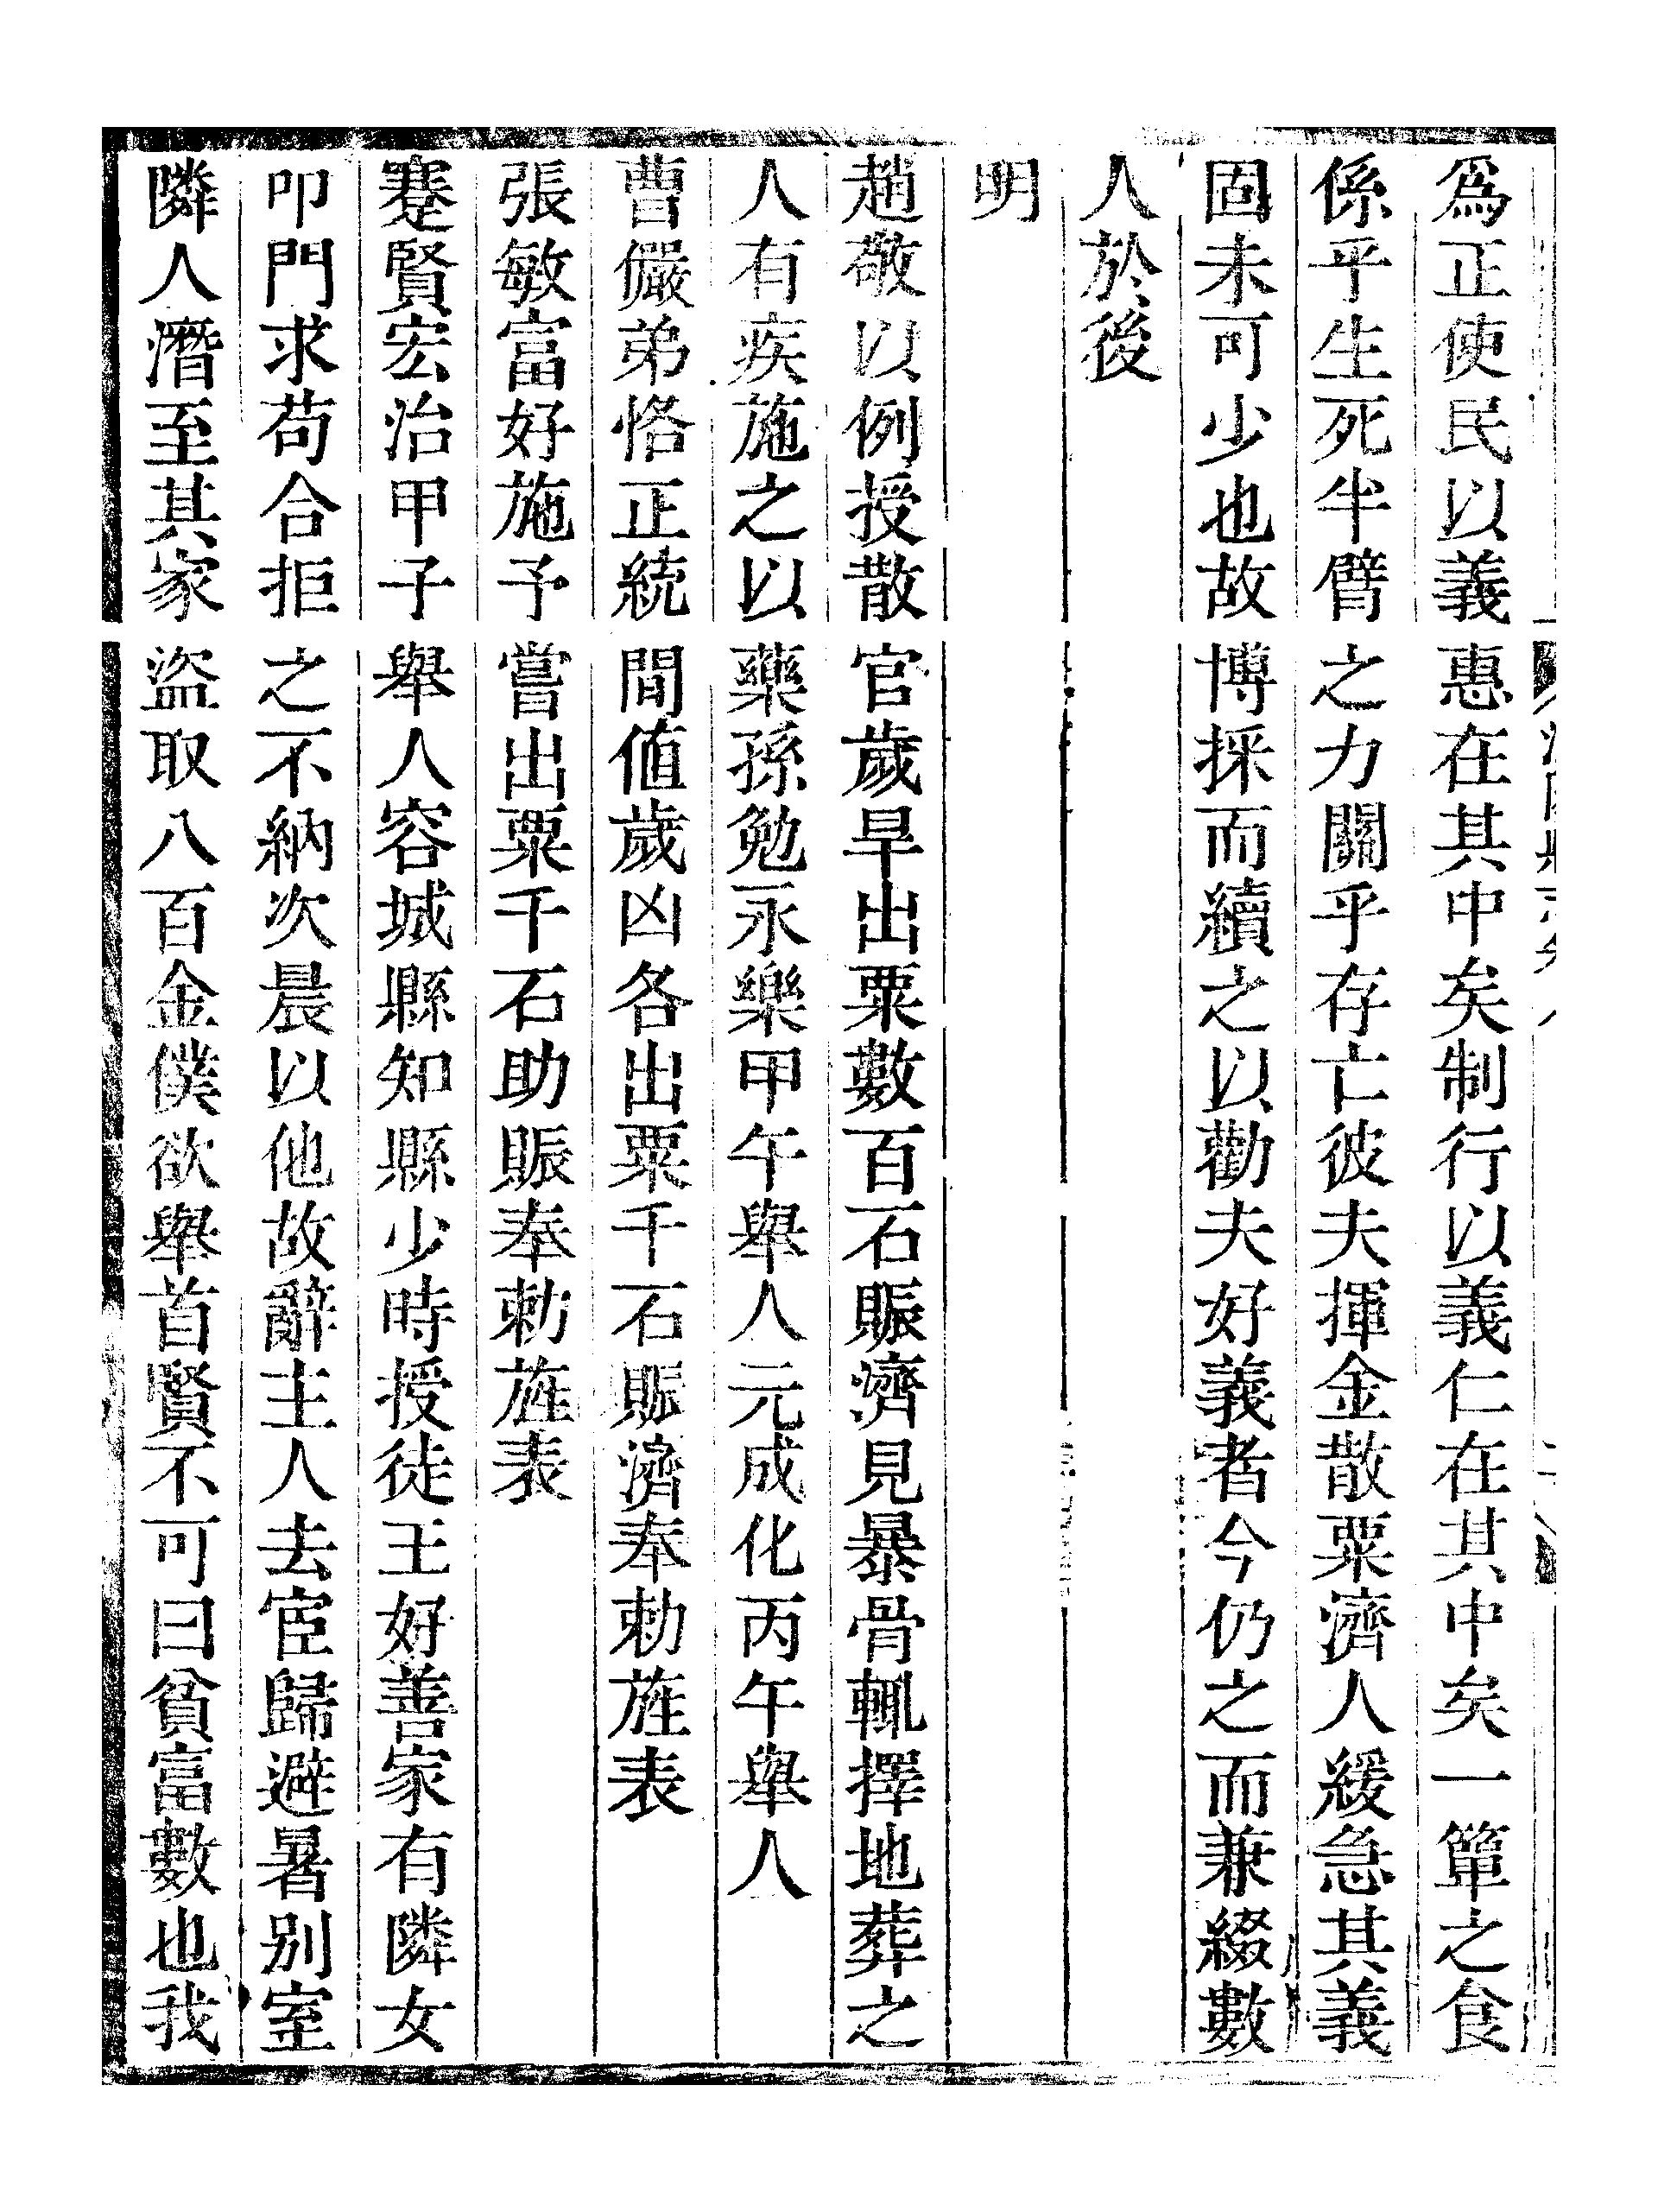 爲正使民以義惠在其中矣制行以義仁在其中矣一簞之食
係乎生死半臂之力關乎存亡彼夫揮金散粟濟人緩急其義
固未可少也故博採而續之以勸夫好義者今仍之而兼綴數
人於後
明
趙敬以例授散官歲旱出粟數百石賑濟見暴骨輒擇地葬之
人有疾施之以藥孫勉永樂甲午舉人元成化丙午舉人
曹儼弟恪正統間値歲凶各出粟千石賑濟奉勅旌表
張敏富好施予嘗出粟千石助賑奉勅旌表
蹇賢宏治甲子舉人容城縣知縣少時授徒王好善家有隣女
叩門求苟合拒之不納次晨以他故辭主人去宦歸避暑別室
隣人潛至其家盜取八百金僕欲舉首賢不可曰貧富數也我